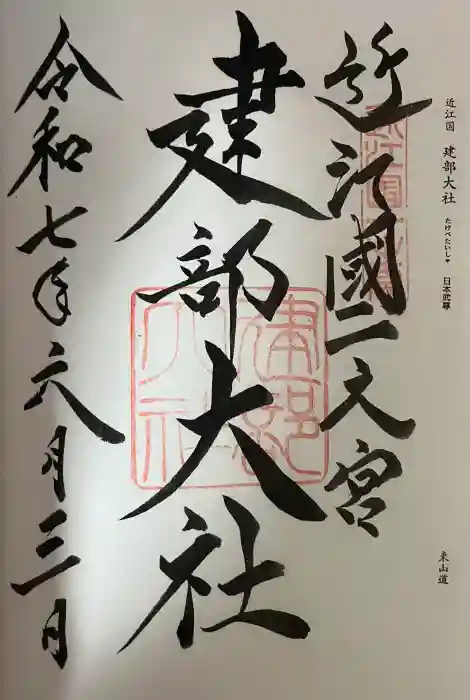 近江国 建部大社 たけべたいしゃ 日本武尊
東山道
近江國一之宮
建部大社
令和七年六月三日
建部
大社